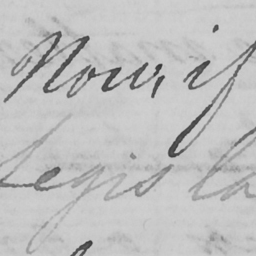 Now, if
Legisla